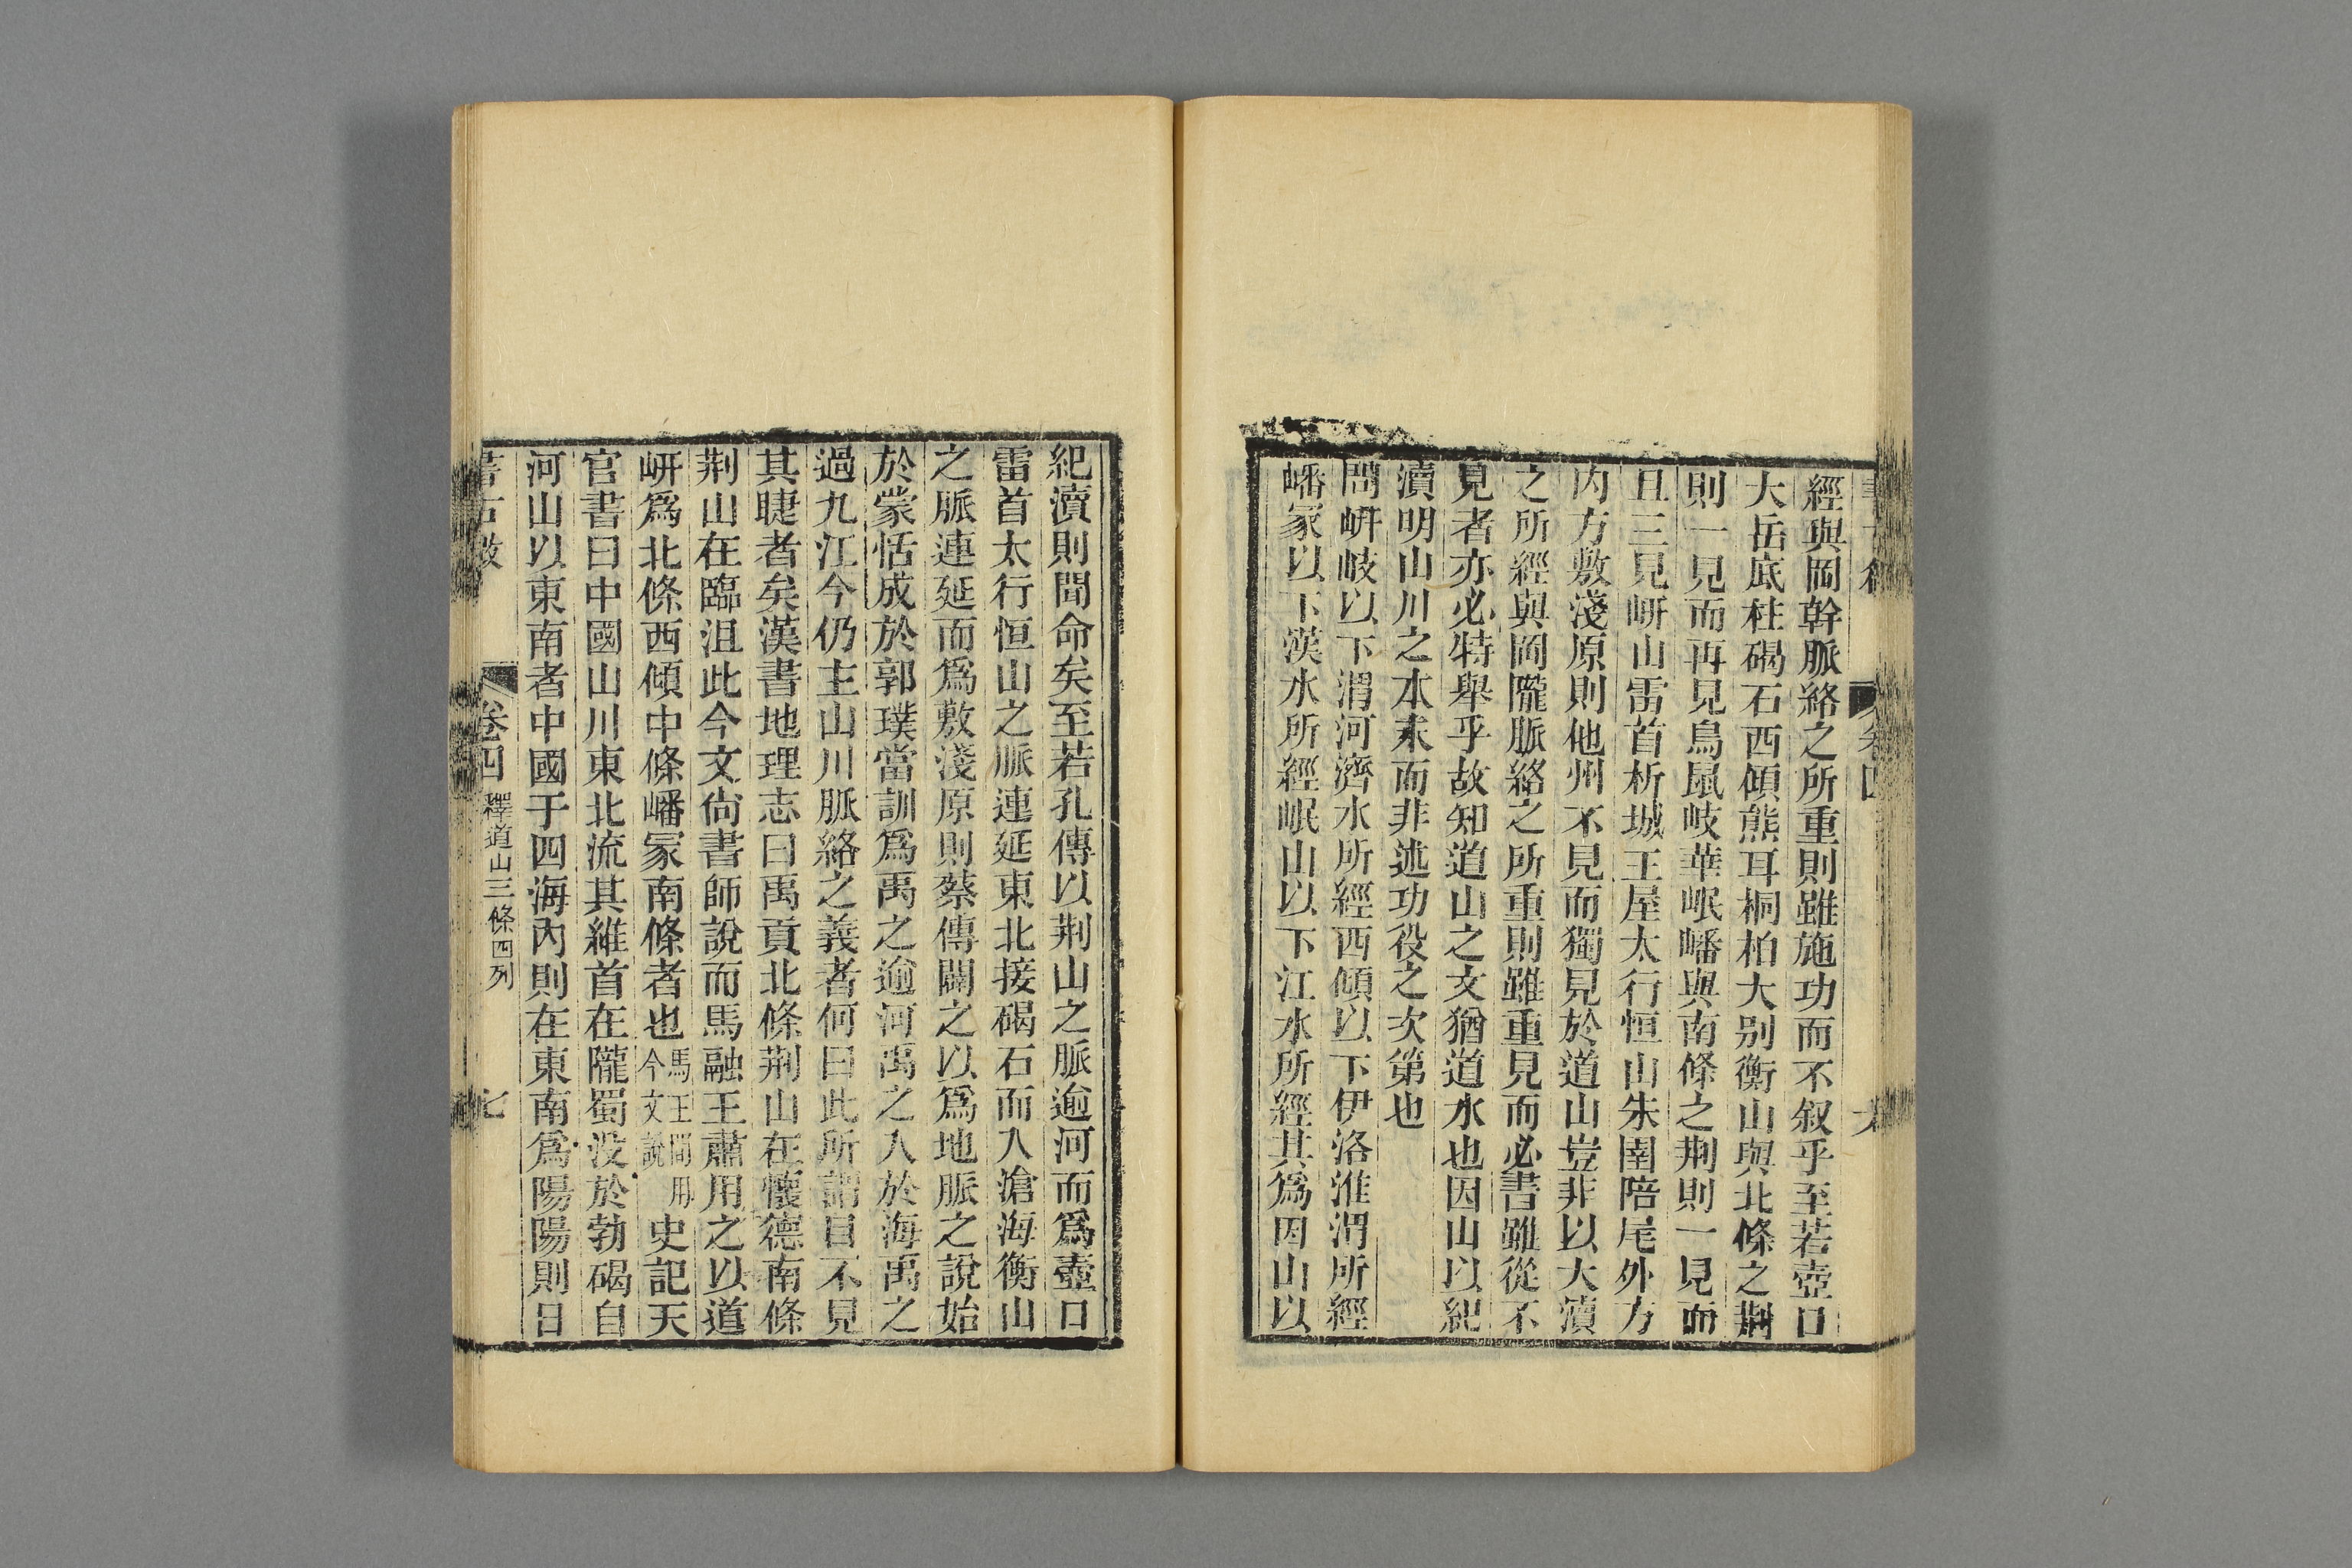 經與岡幹脈絡之所重則雖施功而不叙乎至若壺口
大岳底柱碣石西傾熊耳桐柏大别衡山與北條之荆
則一見而再見鳥鼠岐華岷嶓與南條之荆則一見而
且三見岍山雷首析城王屋太行恒山朱圉陪尾外方
内方敷淺原則他州不見而獨見於道山豈非以大瀆
之所經與岡隴脈絡之所重則雖重見而必書雖從不
見者亦必特舉乎故知道山之文猶道水也因山以紀
瀆明山川之本末而非述功役之次第也
問岍岐以下渭河濟水所經西傾以下伊洛淮渭所經
嶓冢以下漢水所經岷山以下江水所經其爲因山以
紀瀆則聞命矣至若孔傳以荆山之脈逾河而爲壺口
雷首太行恒山之脈連延東北接碣石而入滄海衡山
之脈連延而爲敷淺原則蔡傳闢之以爲地脈之說始
於蒙恬成於郭璞當訓爲禹之逾河禹之入於海禹之
過九江今仍主山川脈絡之義者何曰此所謂目不見
其睫者矣漢書地理志曰禹貢北條荆山在懷德南條
荆山在臨沮此今文尙書師說而馬融王肅用之以道
岍爲北條西傾中條嶓冢南條者也馬王間用今文說史記天
官書曰中國山川東北流其維首在隴蜀没於勃碣自
河山以東南者中國于四海內則在東南爲陽陽則日
書古微 卷四 釋道山三條四列 七